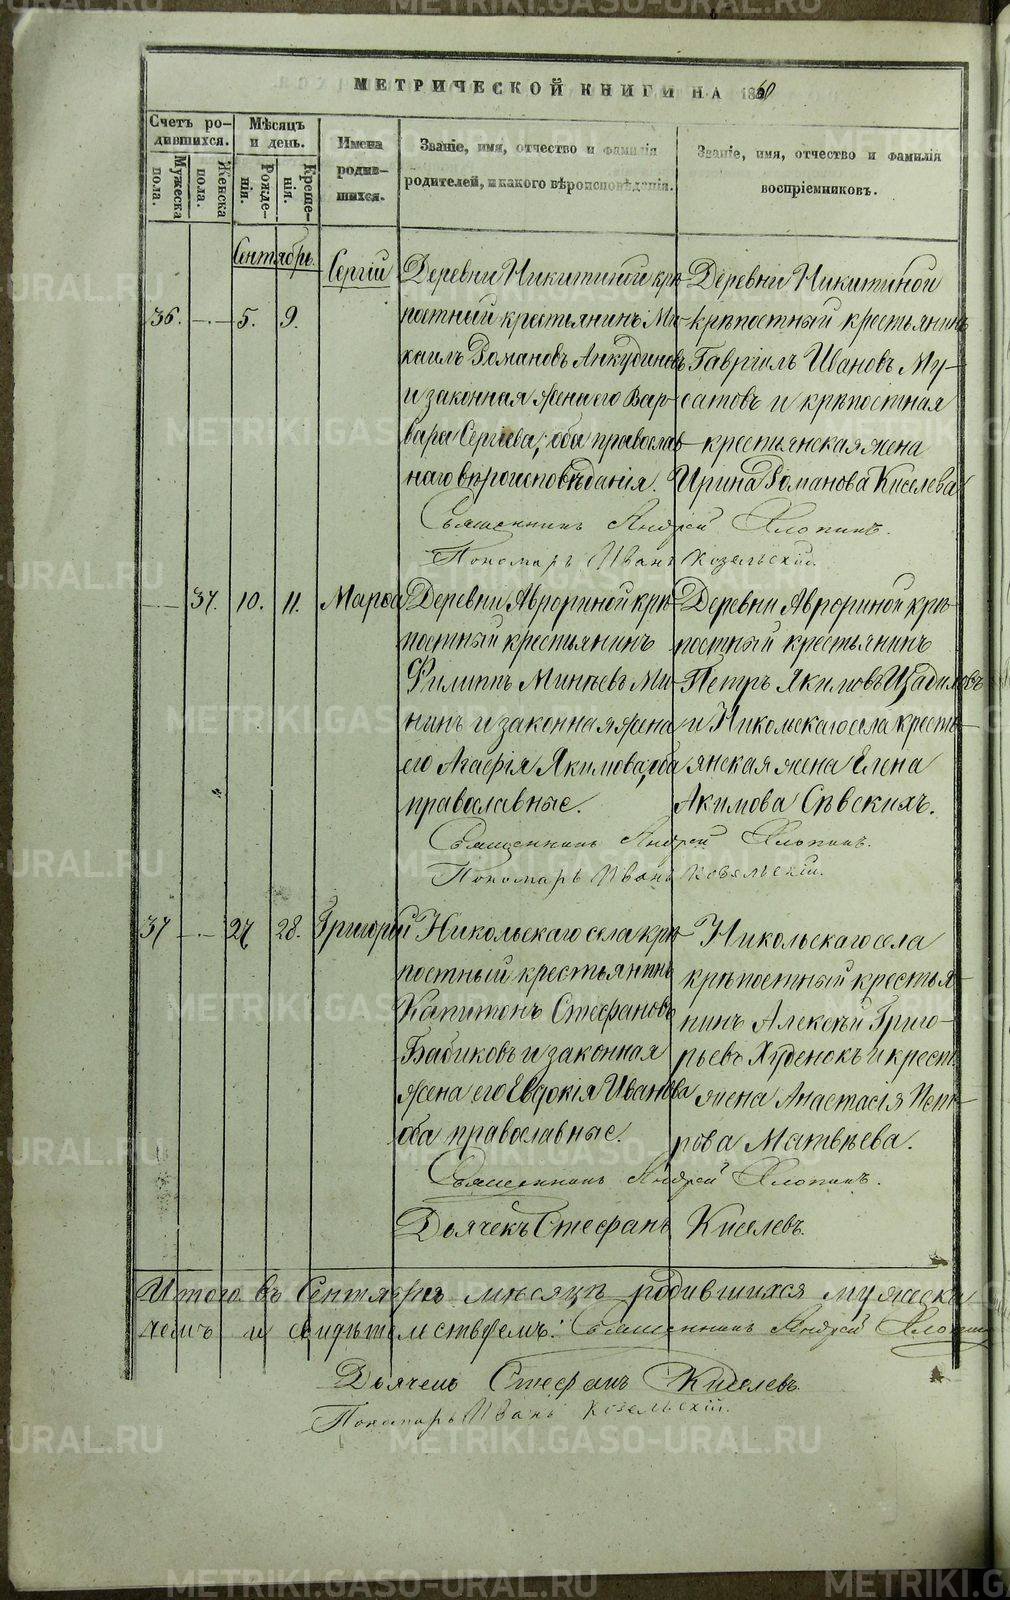 METRIKI.GASO-URAL.RU
МЕТРИЧЕСКОЙ КНИГИ НА 1860
Счетъ ро-
дившихся.
Мѣсяцъ
и день.
Имена
родив-
шихся.
Званіе, имя, отчество и фамилія
родителей, и какого вѣроисповѣданія.
Званіе, имя, отчество и фамилія
воспріемниковъ.
Мужеска
пола.
Женска
пола.
Рожде-
нія.
Креще-
нія.
Сентябрь.
36. — 5. 9.
Сергій
Деревни Никитиной крѣ-
постный крестьянинъ Ми-
хаилъ Романовъ Анкудиновъ
и законная жена его Вар-
вара Сергіева, оба православ-
наго вѣроисповѣданія.
Деревни Никитиной
крѣпостный крестьянинъ
Гавріилъ Ивановъ Му-
сатовъ и крѣпостная
крестьянская жена
Ирина Романова Киселева
Священникъ Андрей Хлопинъ.
Пономарь Иванъ Козельскій.
— 37. 10. 11. Марѳа
Деревни Аврориной крѣ-
постный крестьянинъ
Филиппъ Минѣевъ Ми-
нинъ и законная жена
его Агафія Якимова, оба
православные.
Деревни Аврориной крѣ-
постный крестьянинъ
Петръ Якимовъ
и Никольскаго села кресть-
янская жена Елена
Акимова Сѣвскихъ.
Священникъ Андрей Хлопинъ.
Пономарь Иванъ Козельскій.
37 — 27. 28. Григорій
Никольскаго села крѣ-
постный крестьянинъ
Капитонъ Стефановъ
Бабиковъ и законная
жена его Евдокія Иванова
оба православные.
Никольскаго села
крѣпостный крестья-
нинъ Алексѣй Григо-
рьевъ Худенокъ и крест.
жена Анастасія Пет-
рова Матвѣева.
Священникъ Андрей Хлопинъ.
Дьячекъ Стефанъ Киселевъ.
Итого въ Сентябрѣ мѣсяцѣ родившихся мужеска
чемъ и свидѣтельствуемъ: Священникъ Андрей Хлопинъ
Дьячекъ Стефанъ Киселевъ.
Пономарь Иванъ Козельскій.